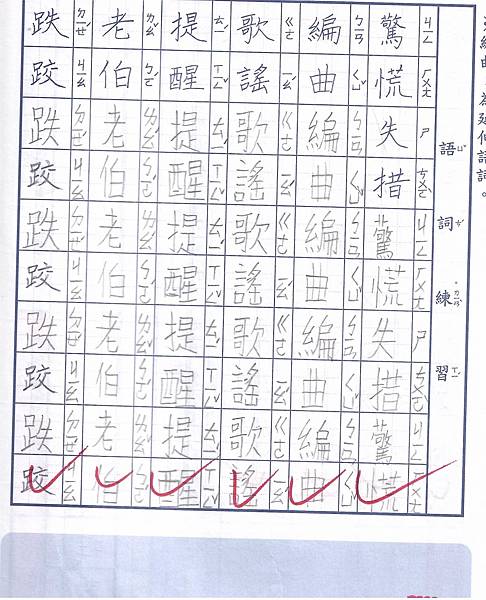 編曲」為延伸語詞。
語ㄩˇ詞ㄘˊ練ㄌㄧㄢˋ習ㄒㄧˊ
驚ㄐㄧㄥ慌ㄏㄨㄤ失ㄕ措ㄘㄨㄛˋ驚ㄐㄧㄥ慌ㄏㄨㄤ失ㄕ措ㄘㄨㄛˋ驚ㄐㄧㄥ慌ㄏㄨㄤ
編ㄅㄧㄢ曲ㄑㄩˇ編ㄅㄧㄢ曲ㄑㄩˇ編ㄅㄧㄢ曲ㄑㄩˇ編ㄅㄧㄢ曲ㄑㄩˇ編ㄅㄧㄢ曲ㄑㄩˇ
歌ㄍㄜ謠ㄧㄠˊ歌ㄍㄜ謠ㄧㄠˊ歌ㄍㄜ謠ㄧㄠˊ歌ㄍㄜ謠ㄧㄠˊ歌ㄍㄜ謠ㄧㄠˊ
提ㄊㄧˊ醒ㄒㄧㄥˇ提ㄊㄧˊ醒ㄒㄧㄥˇ提ㄊㄧˊ醒ㄒㄧㄥˇ提ㄊㄧˊ醒ㄒㄧㄥˇ提ㄊㄧˊ醒ㄒㄧㄥˇ
老ㄌㄠˇ伯ㄅㄛˊ老ㄌㄠˇ伯ㄅㄛˊ老ㄌㄠˇ伯ㄅㄛˊ老ㄌㄠˇ伯ㄅㄛˊ老ㄌㄠˇ伯ㄅㄛˊ
跌ㄉㄧㄝˊ跤ㄐㄧㄠ跌ㄉㄧㄝˊ跤ㄐㄧㄠ跌ㄉㄧㄝˊ跤ㄐㄧㄠ跌ㄉㄧㄝˊ跤ㄐㄧㄠ跌ㄉㄧㄝˊ跤ㄐㄧㄠ